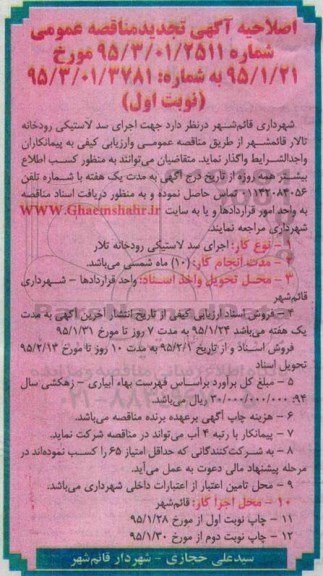 اصلاحیه آگهی تجدیدمناقصه عمومی
شماره ۹۵/۳/۰۱/۲۵۱۱ مورخ
۹۵/۱/۲۱ به شماره: ۹۵/۳/۰۱/۳۷۸۱
(نوبت اول)
شهرداری قائم‌شهر درنظر دارد جهت اجرای سد لاستیکی رودخانه
تالار قائمشهر از طریق مناقصه عمومی وارزیابی کیفی به پیمانکاران
واجدالشرایط واگذار نماید. متقاضیان می‌توانند به منظور کسب اطلاع
بیشتر همه روزه از تاریخ درج آگهی به مدت یک هفته با شماره تلفن
۰۱۱۴۲۰۸۴۰۵۶ تماس حاصل نموده و به منظور دریافت اسناد مناقصه
به واحد امور قراردادها و یا به سایت www.Ghaemshahr.ir
شهرداری مراجعه نمایند.
۱ - نوع کار: اجرای سد لاستیکی رودخانه تلار
۲ - مدت انجام کار: (۱۰) ماه شمسی می‌باشد.
۳ - محل تحویل واحد اسناد: واحد قراردادها - شهرداری
قائم‌شهر
۴ - فروش اسناد ارزیابی کیفی از تاریخ انتشار آخرین آگهی به مدت
یک هفته می‌باشد ۹۵/۱/۲۴ به مدت ۷ روز تا مورخ ۹۵/۱/۳۱
فروش اسناد و از تاریخ ۹۵/۲/۱ به مدت ۱۰ روز تا مورخ ۹۵/۲/۱۳
تحویل اسناد
۵ - مبلغ کل برآورد براساس فهرست بهاء آبیاری - زهکشی سال
۹۴ ۳۰/۰۰۰/۰۰۰/۰۰۰ ریال می‌باشد.
۶ - هزینه چاپ آگهی برعهده برنده مناقصه می‌باشد.
۷ - پیمانکار با رتبه ۴ آب می‌تواند در مناقصه شرکت نماید.
۸ - به شرکت‌کنندگانی که حداقل امتیاز ۶۵ را کسب نموده‌اند در
مرحله پیشنهاد مالی دعوت به عمل می‌آید.
۹ - محل تامین اعتبار از اعتبارات داخلی شهرداری می‌باشد.
۱۰ - محل اجرا کار: قائم‌شهر
۱۱ - چاپ نوبت اول از مورخ ۹۵/۱/۲۸
۱۲ - چاپ نوبت دوم از مورخ ۹۵/۱/۳۰
سیدعلی حجازی - شهردار قائم‌شهر